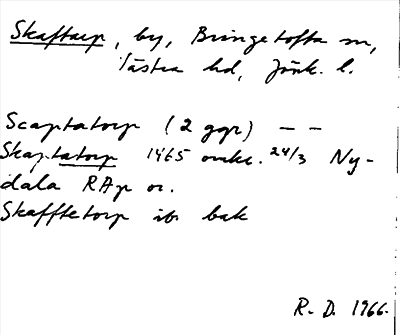 Skaftarp, by, Bringetofta sn,
Västra hd, Jönk. l.
Scaptatorp (2 ggr) — —
Skaptatorp 1465 omkr. 24/3 Ny-
dala RAp or.
Skaffletorp ib bak
R. D. 1966.